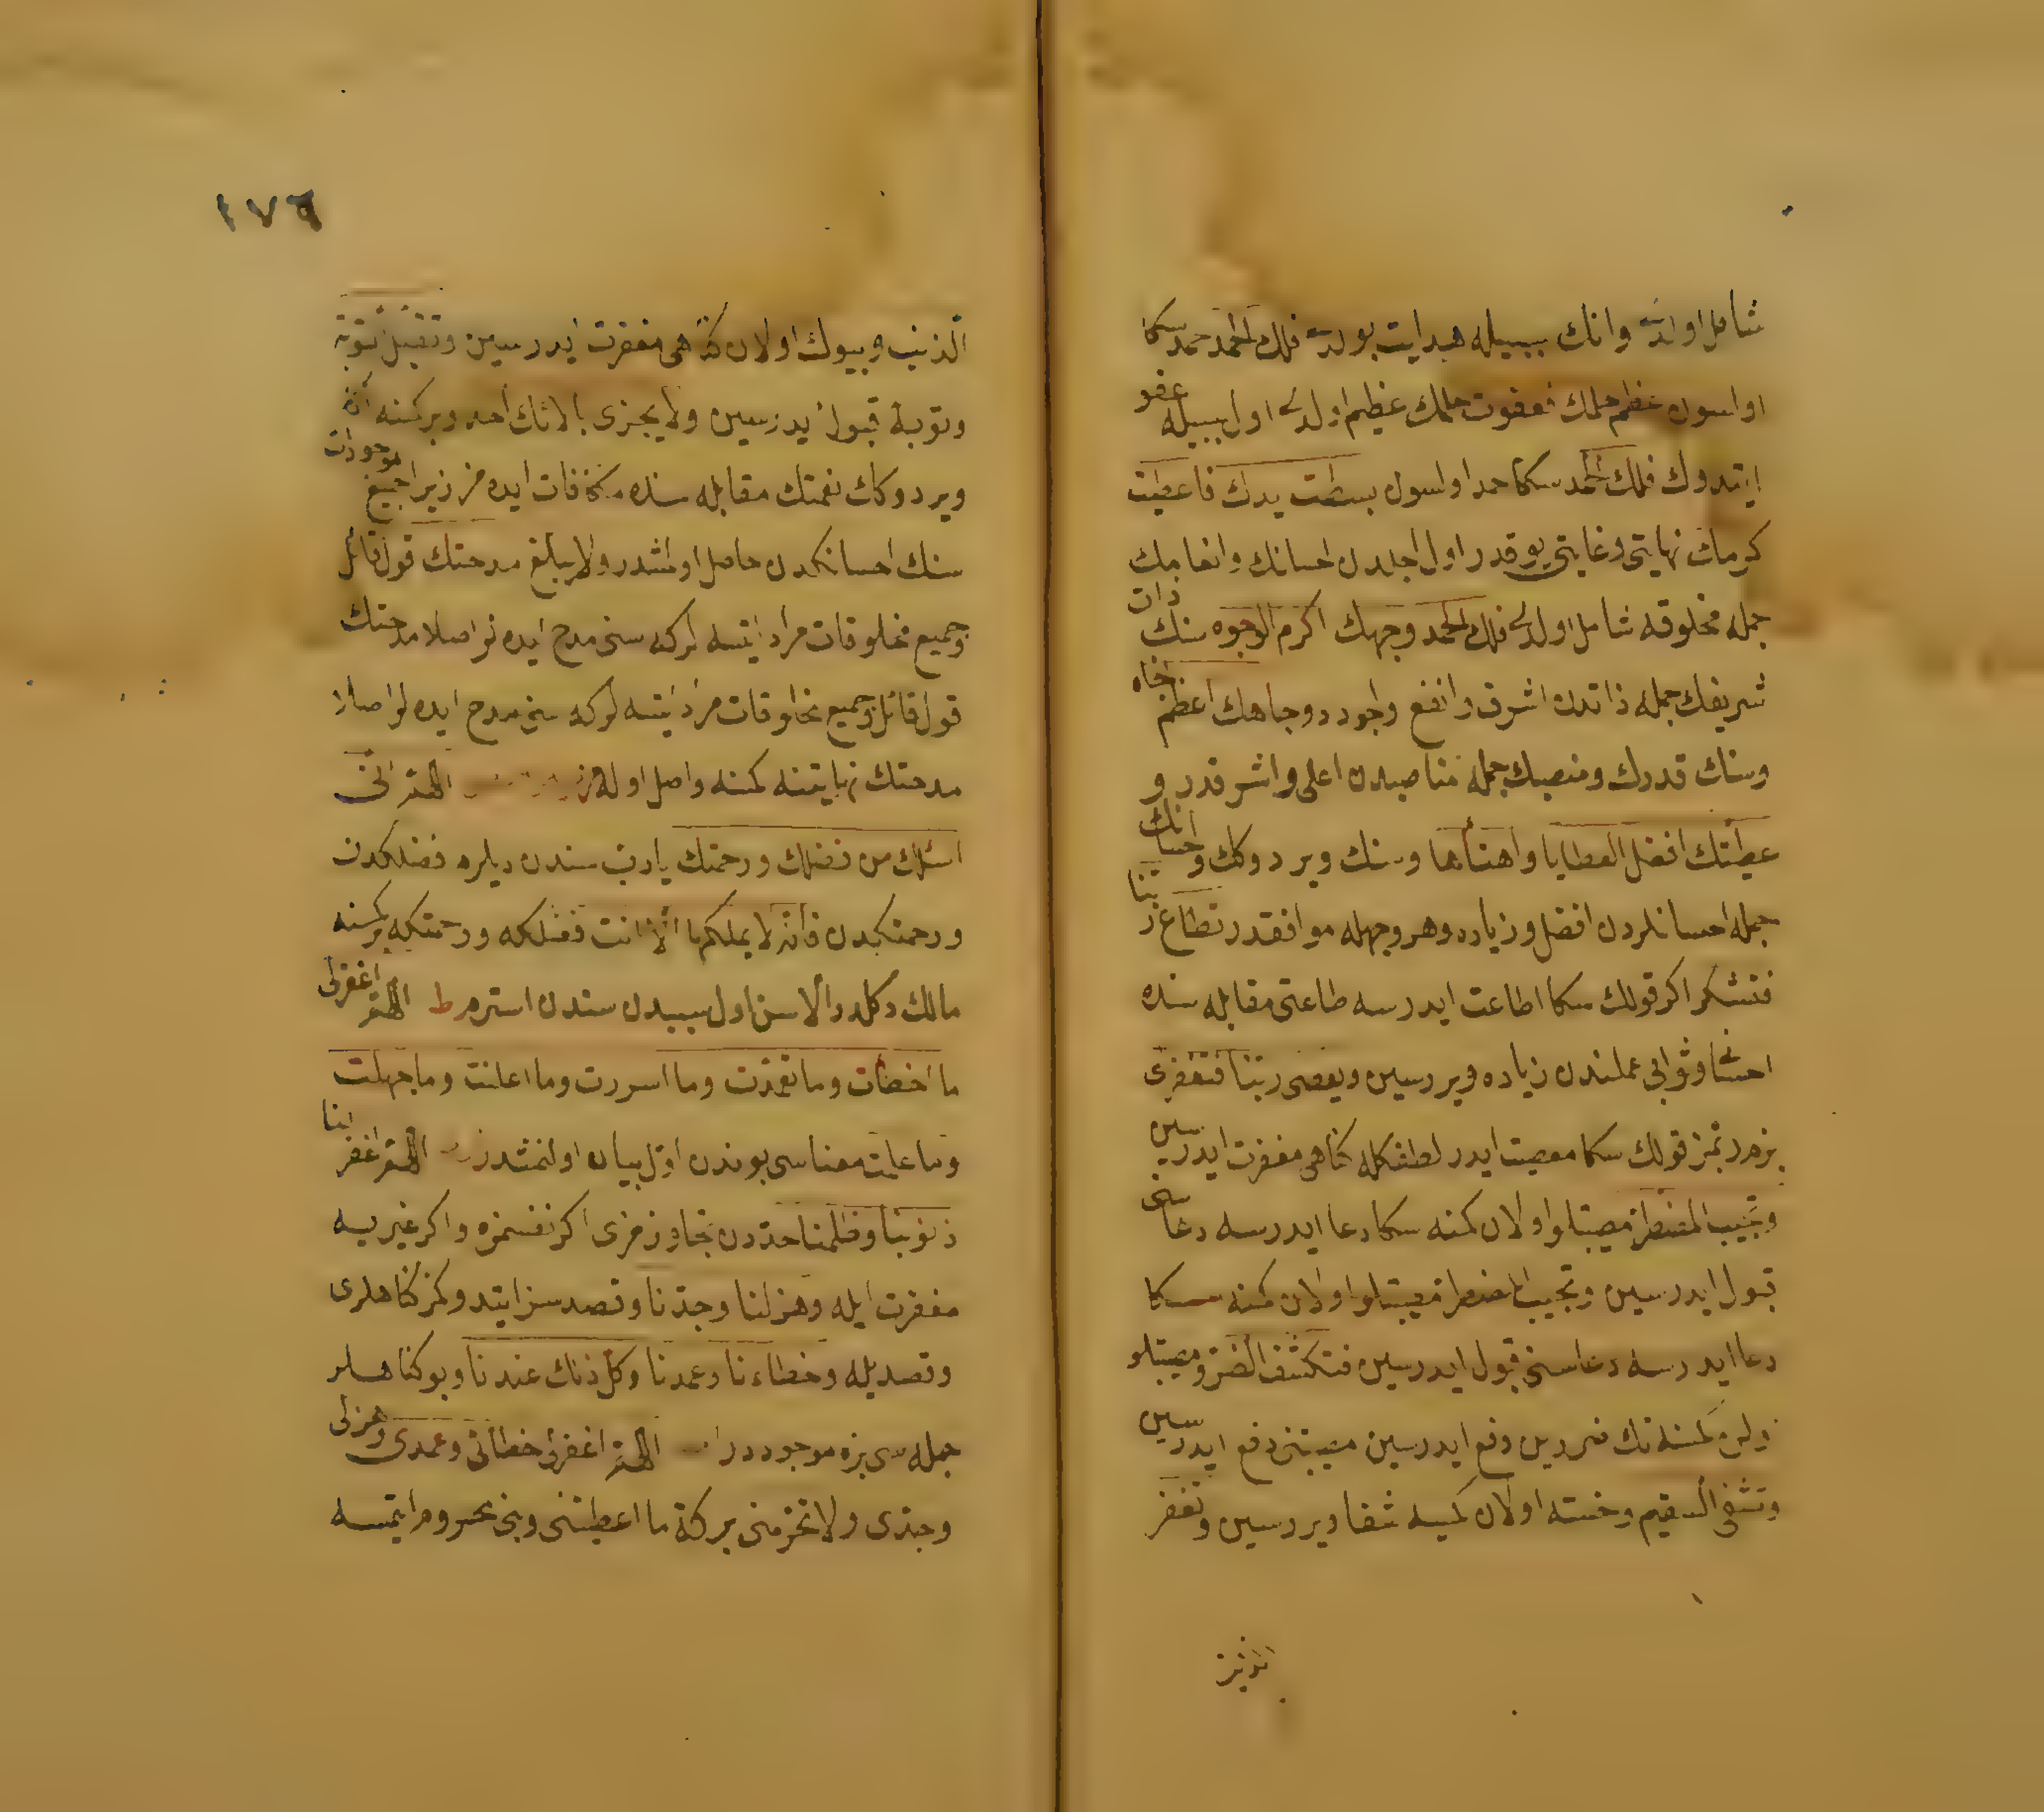 شامل اولدى وانك سببيله هدايت بولدى فلك الحمد حمد سكا
اولسون عظم حلمك فعفوت حلمك عظيم اولدى اول سببيله عفو
ايتدوك فلك الحمد سكا حمد اولسون بسطت يدك فاعطيت
كرمك نهايتى وغايتى يوقدر اول اجلدن احسانك وانعامك
جمله مخلوقه شامل اولدى فلك الحمد وجهك اكرم الوجوه سنك ذات
شريفك جمله ذاتدن اشرف وانفع واجوددر وجاهك اعظم الجاه
وسنك قدرك ومنصبك جمله مناصبدن اعلى واشرفدر و
عطيتك افضل العطايا واهنأها وسنك ويردوكك واحسانك
جمله احسانلردن افضل وزياده وهر وجهله موافقدر تطاع ربنا
فتشكر اكر قولك سكا اطاعت ايدرسه طاعتى مقابله سنده
احسان وثوابى عملندن زياده ويررسين ويعصى ربنا فتغفر اى
بزم ربمز قولك سكا معصيت ايدر لطفكله كناهى مغفرت ايدرسين
وتجيب المضطر مصيبتلو اولان كمسه سكا دعا ايدرسه دعاسنى
قبول ايدرسين وتجيب المضطر مصيبتلو اولان كمسه سكا
دعا ايدرسه دعاسنى قبول ايدرسين فتكشف الضر ومصيبتلو
اولان كمسنه نك ضررين دفع ايدرسين مصيبتنى دفع ايدرسين
وتشفى السقيم وخسته اولان كمسه شفا ويررسين وتغفر
الذنب
١٧٦
الذنب وبيوك اولان كناهى مغفرت ايدرسين وتقبل التوبة
وتوبه قبول ايدرسين ولا يجزى بالائك احد وبر كمسنه اكا
ويردوكك نعمتك مقابله سنده مكافات ايده مز زيرا جميع موجودات
سنك احسانكدن حاصل اولمشدر ولا يبلغ مدحتك قول قائل
وجميع مخلوقات مراد ايتسه لركه سنى مدح ايده لر اصلا مدحتك
قول قائل وجميع مخلوقات مراد ايتسه لركه سنى مدح ايده لر اصلا
مدحتك نهايتنه كمسه واصل اوله مز اللهم انى
اسئلك من فضلك ورحمتك يا رب سندن ديلرم فضلكدن
ورحمتكدن فانه لا يملكها الا انت فضلكه ورحمتكه بر كمسنه
مالك دكلدر الا سن اول سببدن سندن استرم ط اللهم اغفرلى
ما اخطأت وما تعمدت وما اسررت وما اعلنت وما جهلت
وما علمت معناسى بوندن اول بيان اولنمشدر اللهم اغفر لنا
ذنوبنا وظلمنا حددن تجاوزمزى اكر نفسمزه واكر غيريسه
مغفرت ايله وهزلنا وجدنا وقصدسز ايتدوكمز كناهلرى
وقصديله وخطاءنا وعمدنا وكل ذلك عندنا وبو كناهلر
جمله سى بزه موجوددر اللهم اغفرلى خطائى وعمدى وهزلى
وجدى ولا تحرمنى بركة ما اعطيتنى وبنى محروم ايتمسه